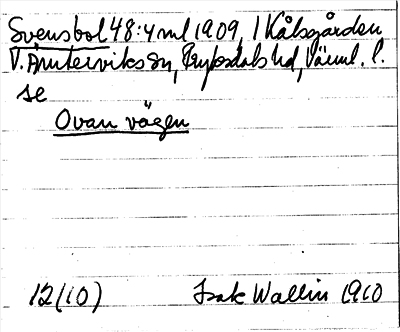 Svensbol 48:4 ml 1909, i Kålsgården
V. Ämterviks sn, Fryksdals hd, Värml. l.
se
Ovan vägen
12(10) Isak Wallin 1910